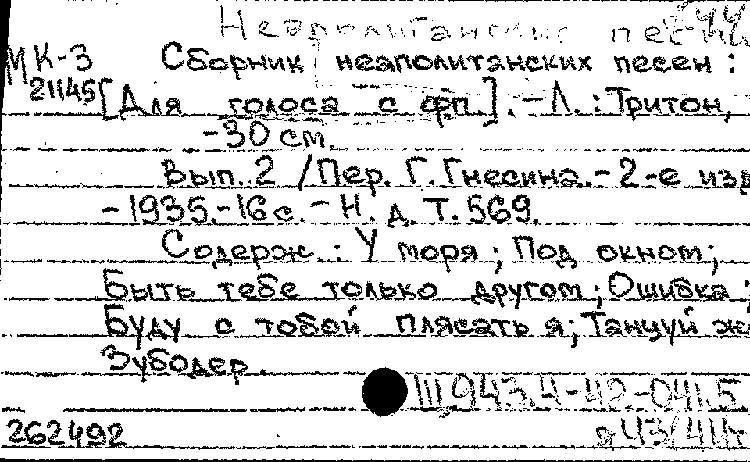 Неаполитанские песни
МК-3 Сборник неаполитанских песен :
21145 [Для голоса с фп.]. - Л. : Тритон,
- 30 см.
Вып. 2 / Пер. Г. Гнесина. - 2-е изд
- 1935. - 16 с. - Н. д. Т. 569.
Содерж. : У моря ; Под окном ;
Быть тебе только другом ; Ошибка ;
Буду с тобой плясать я ; Танцуй же
Зубодер.
Ш 943.4-42-041.5
262492